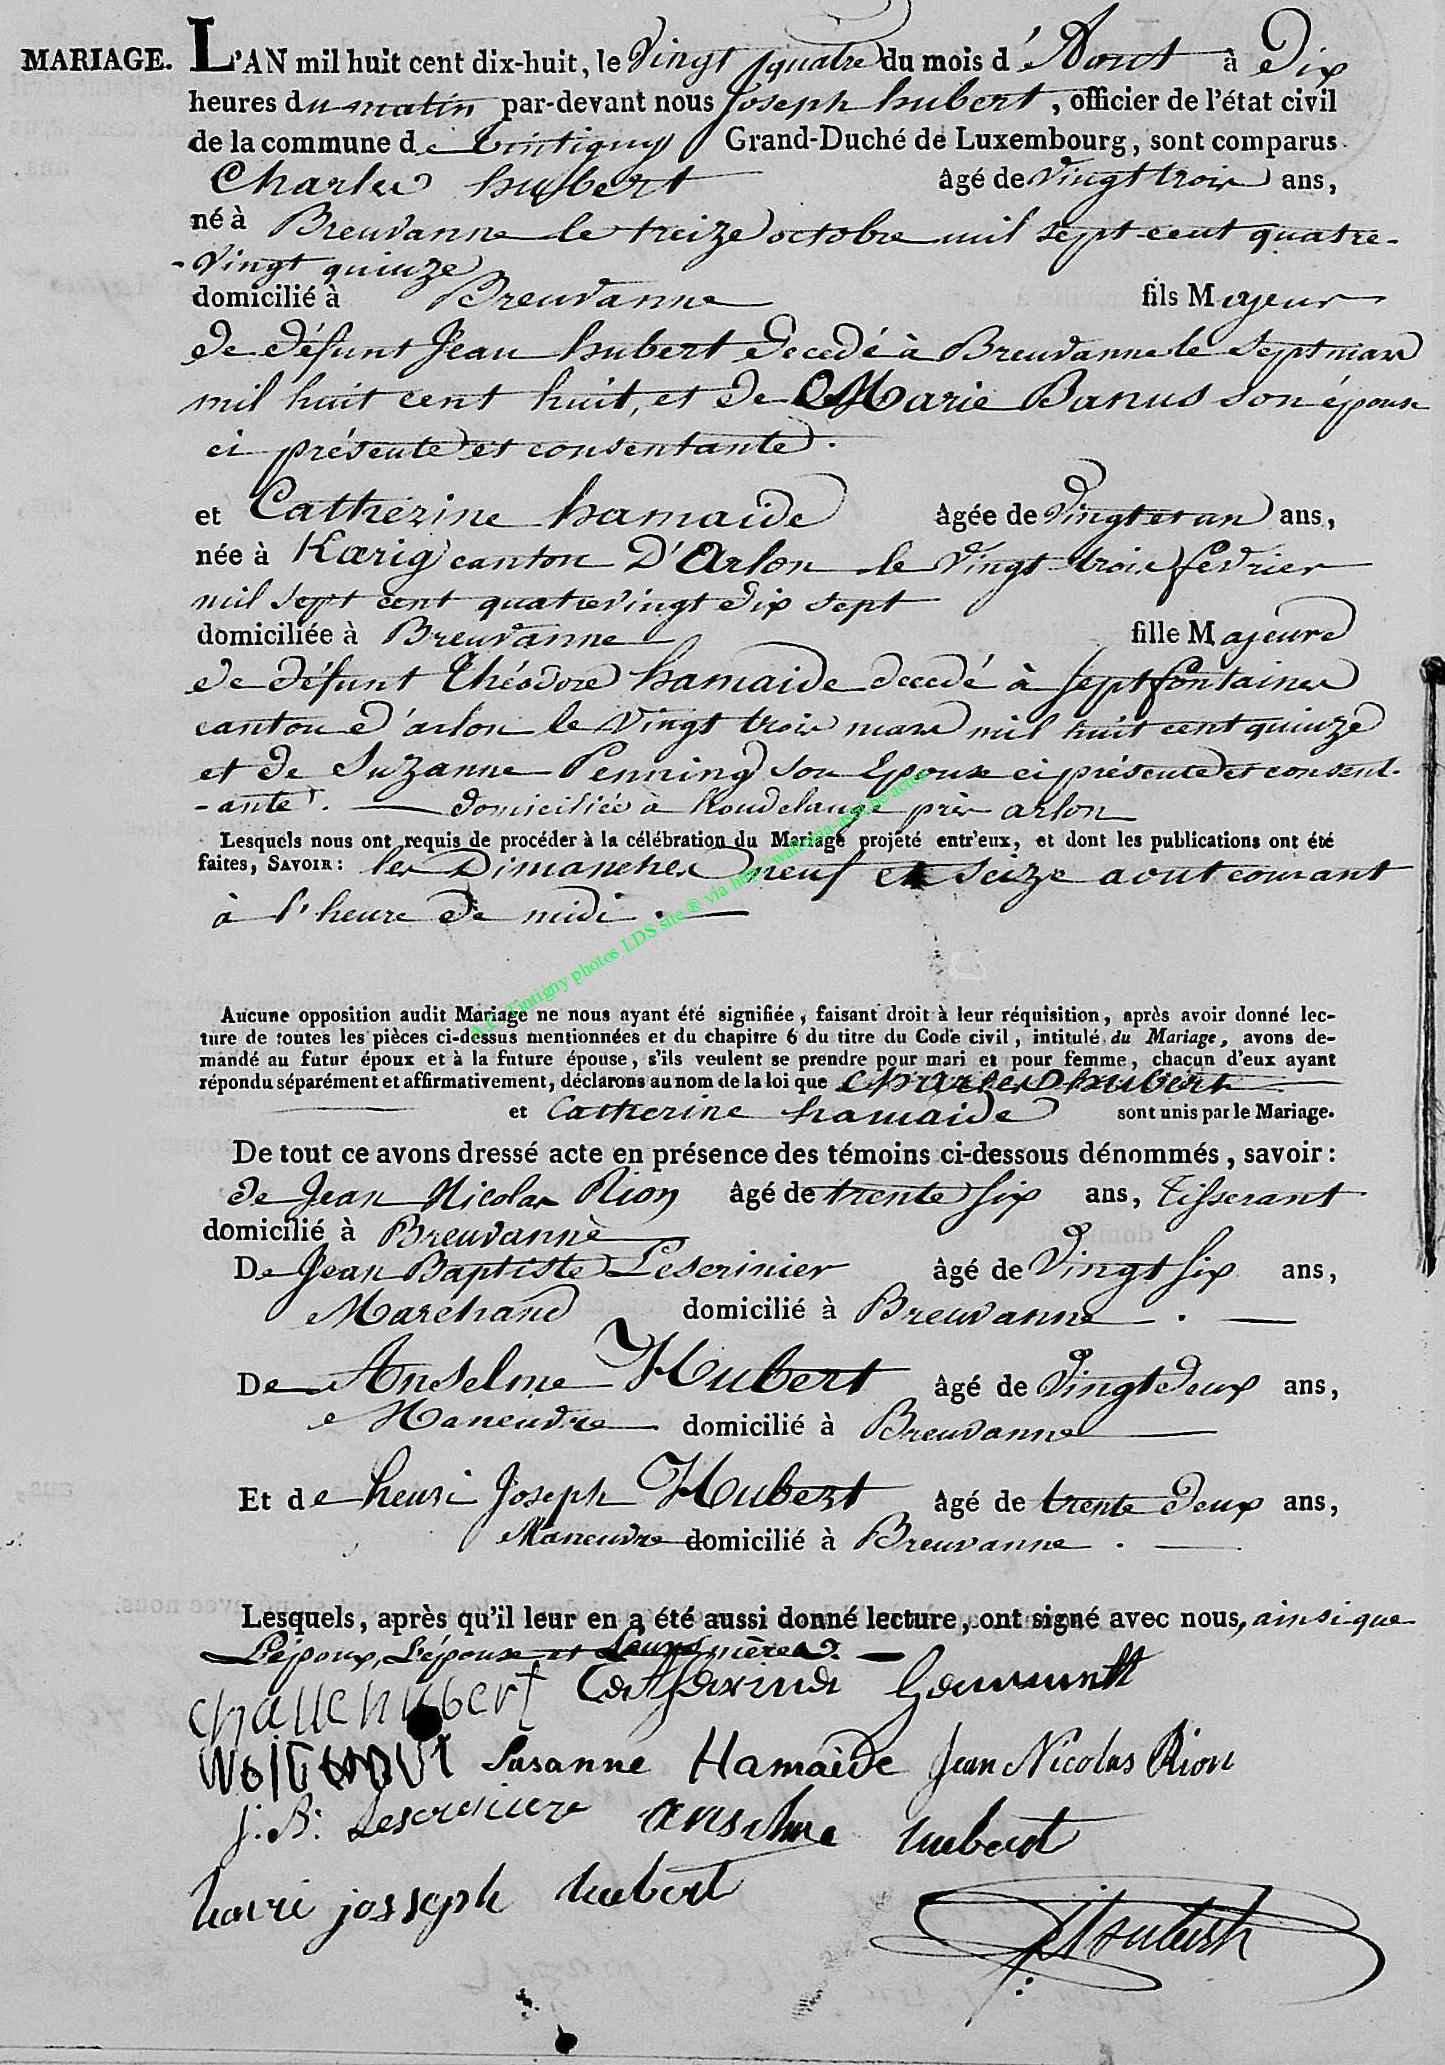 MARIAGE. L'AN mil huit cent dix-huit, le Vingt quatre du mois d'Aout à Dix
heures du matin par-devant nous Joseph hubert, officier de l'état civil
de la commune de tintigny Grand-Duché de Luxembourg, sont comparus
Charles hubert âgé de Vingt trois ans,
né à Breuvanne le treize octobre mil sept cent quatre-
-Vingt quinze
domicilié à Breuvanne fils Majeur
de défunt Jean hubert decedé à Breuvanne le sept mars
mil huit cent huit, et de Marie Banus son épouse
ci présente et consentante.
et Catherine hamaide âgée de Vingt et un ans,
née à Kœrig canton D'Arlon le Vingt-trois fevrier
mil sept cent quatre vingt dix sept
domiciliée à Breuvanne fille Majeure
de défunt théodore hamaide decedé à septfontaines
canton d'arlon le vingt trois mars mil huit cent quinze
et de Suzanne Penning son Epouse ci présente et consent-
-ante. domiciliée à houdelange près arlon
Lesquels nous ont requis de procéder à la célébration du Mariage projeté entr'eux, et dont les publications ont été
faites, SAVOIR: les Dimanches neuf et seize aout courant
à l'heure de midi.
A.C. Tintigny photos LDS site ® via http://wallonia-asbl.be/actes
Aucune opposition audit Mariage ne nous ayant été signifiée, faisant droit à leur réquisition, après avoir donné lec-
ture de toutes les pièces ci-dessus mentionnées et du chapitre 6 du titre du Code civil, intitulé du Mariage, avons de-
mandé au futur époux et à la future épouse, s'ils veulent se prendre pour mari et pour femme, chacun d'eux ayant
répondu séparément et affirmativement, déclarons au nom de la loi que Charles hubert
et Catherine hamaide sont unis par le Mariage.
De tout ce avons dressé acte en présence des témoins ci-dessous dénommés, savoir:
de Jean Nicolas Rion âgé de trente six ans, tisserant
domicilié à Breuvanne
De Jean Baptiste Lescrinier âgé de Vingt six ans,
Marchand domicilié à Breuvanne.
De Anselme Hubert âgé de Vingt deux ans,
Maneuvre domicilié à Breuvanne
Et de henri Joseph Hubert âgé de trente deux ans,
Maneuvre domicilié à Breuvanne.
Lesquels, après qu'il leur en a été aussi donné lecture, ont signé avec nous, ainsi que
L'époux, L'épouse et Leurs mères.
challe hubert
Susanne Hamaide Jean Nicolas Rion
J. B. Lescriniere anselme hubert
henri josseph hubert